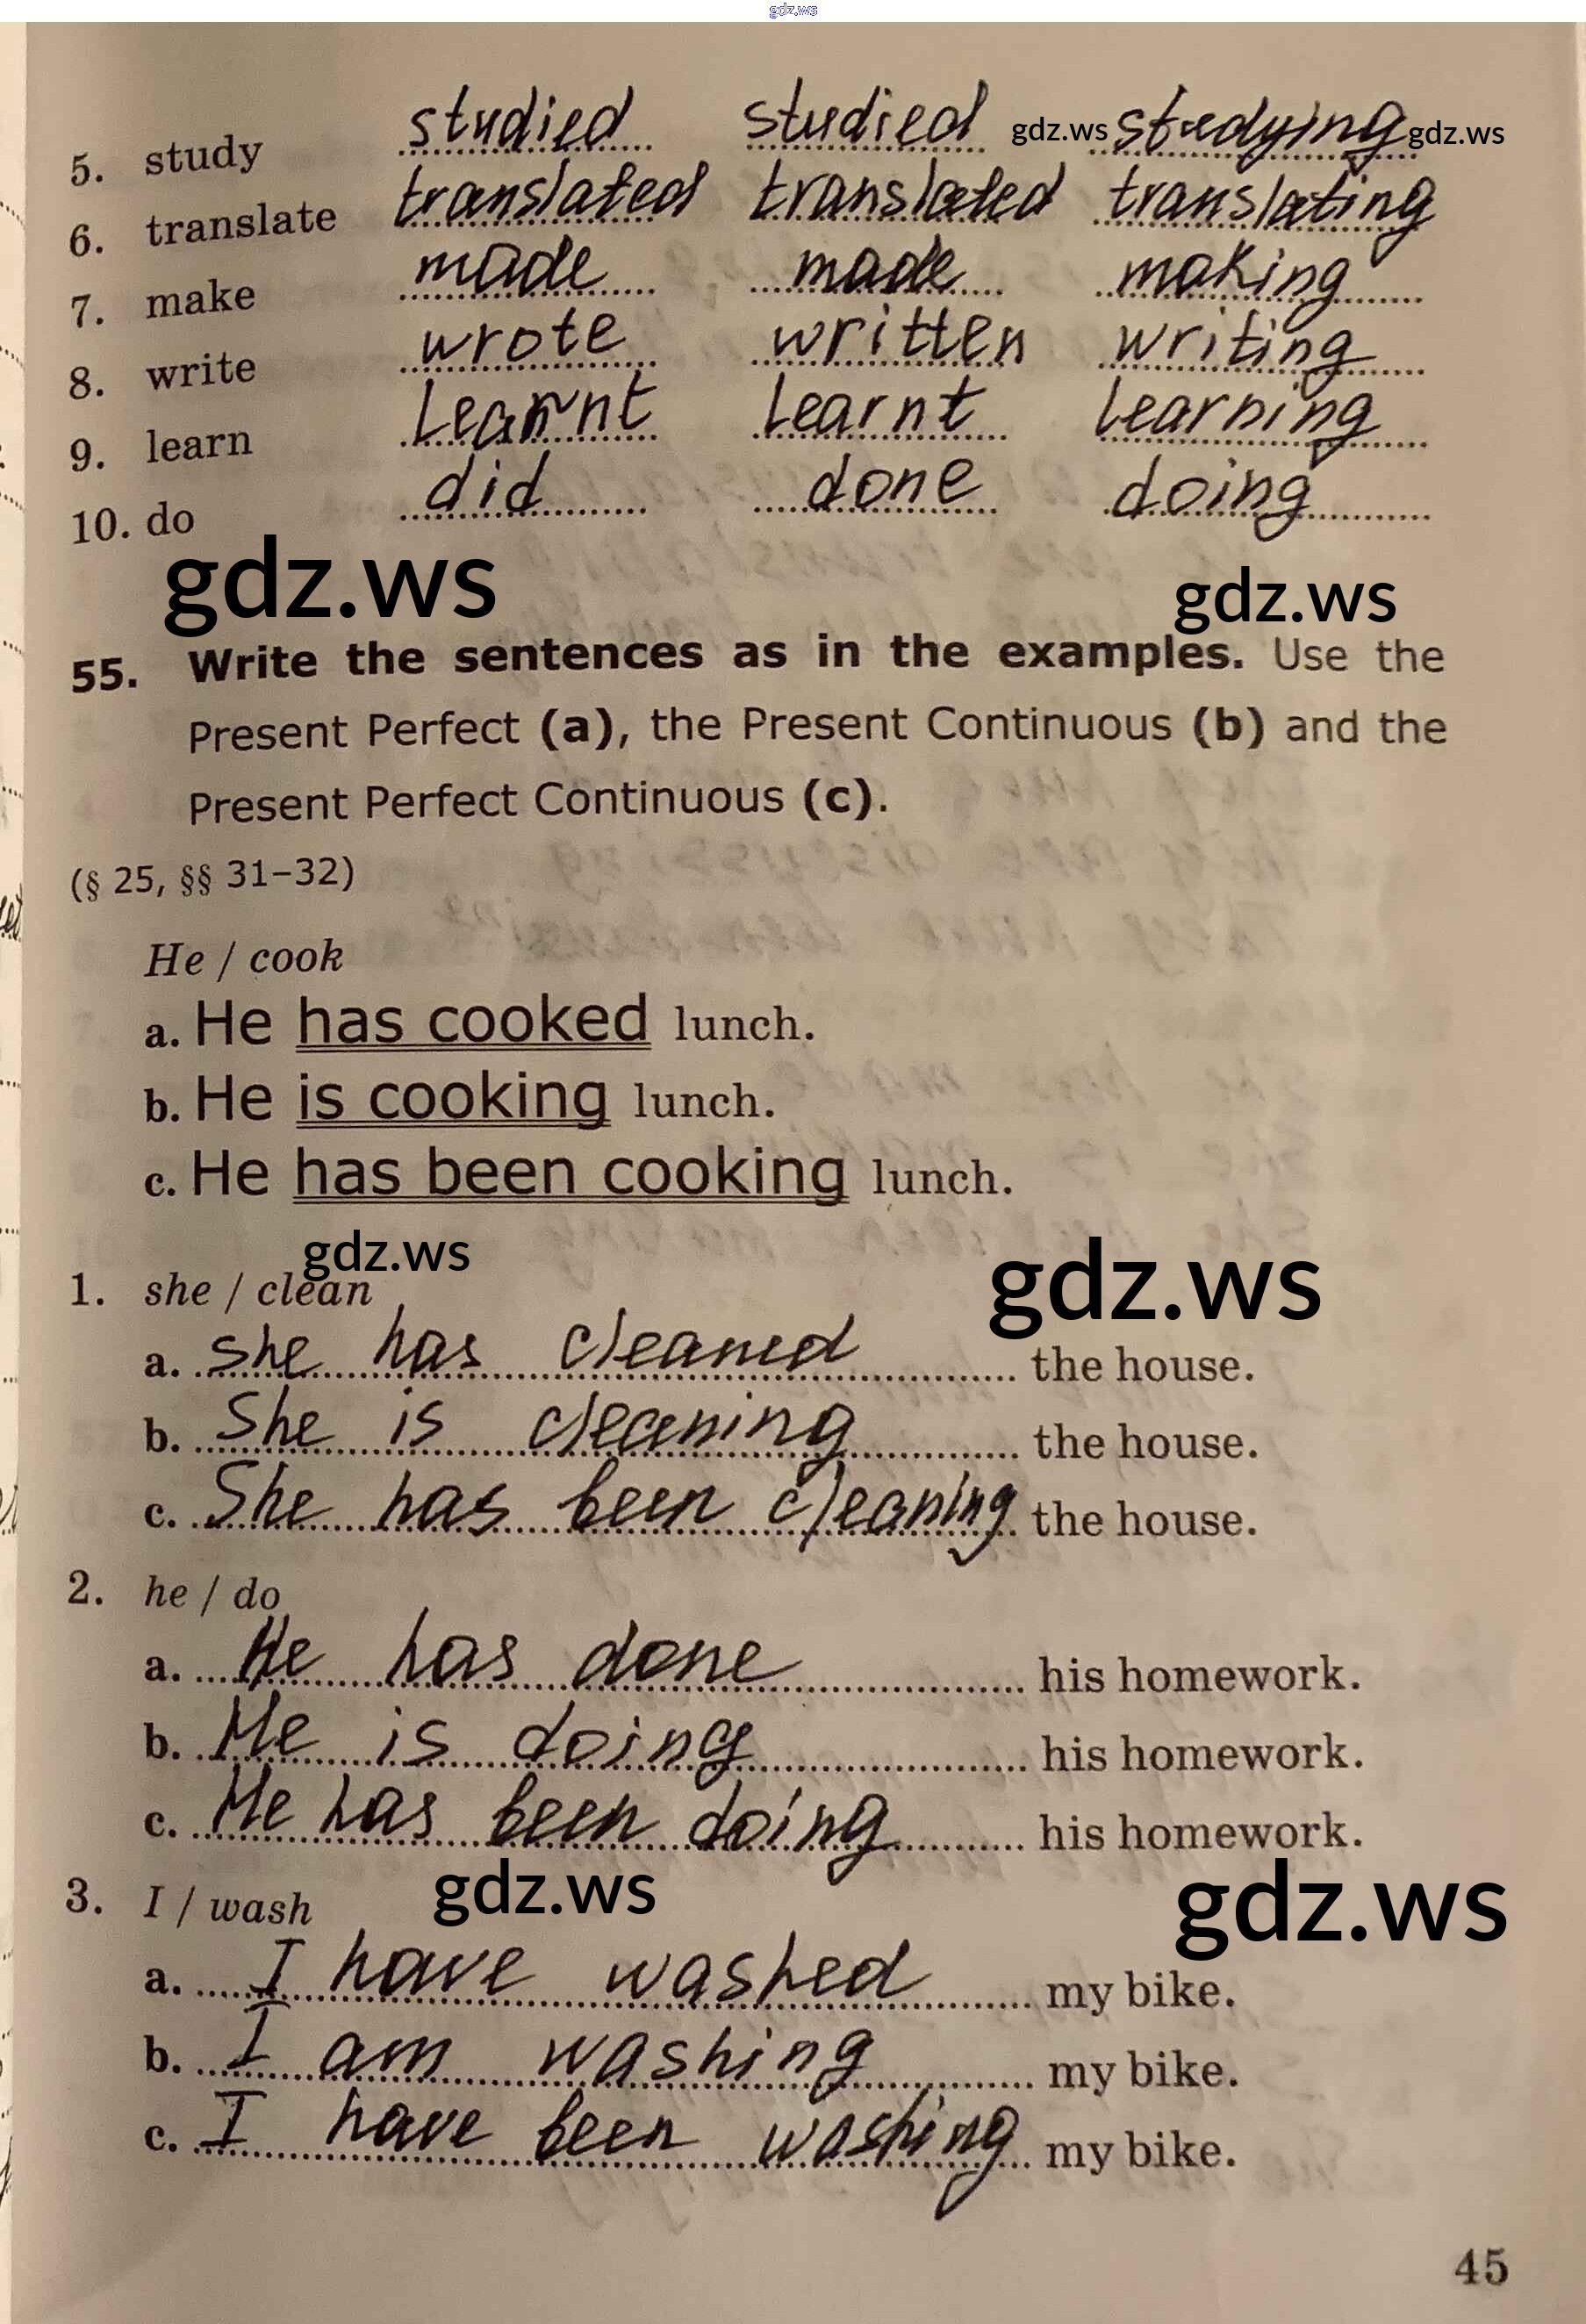 gdz.ws
5. study studied studied gdz.ws studying gdz.ws
6. translate translated translated translating
7. make made made making
8. write wrote written writing
9. learn learnt learnt learning
10. do did done doing
gdz.ws gdz.ws
55. Write the sentences as in the examples. Use the
Present Perfect (a), the Present Continuous (b) and the
Present Perfect Continuous (c).
(§ 25, §§ 31–32)
He / cook
a. He has cooked lunch.
b. He is cooking lunch.
c. He has been cooking lunch.
gdz.ws gdz.ws
1. she / clean
a. She has cleaned the house.
b. She is cleaning the house.
c. She has been cleaning the house.
2. he / do
a. He has done his homework.
b. He is doing his homework.
c. He has been doing his homework.
gdz.ws gdz.ws
3. I / wash
a. I have washed my bike.
b. I am washing my bike.
c. I have been washing my bike.
45